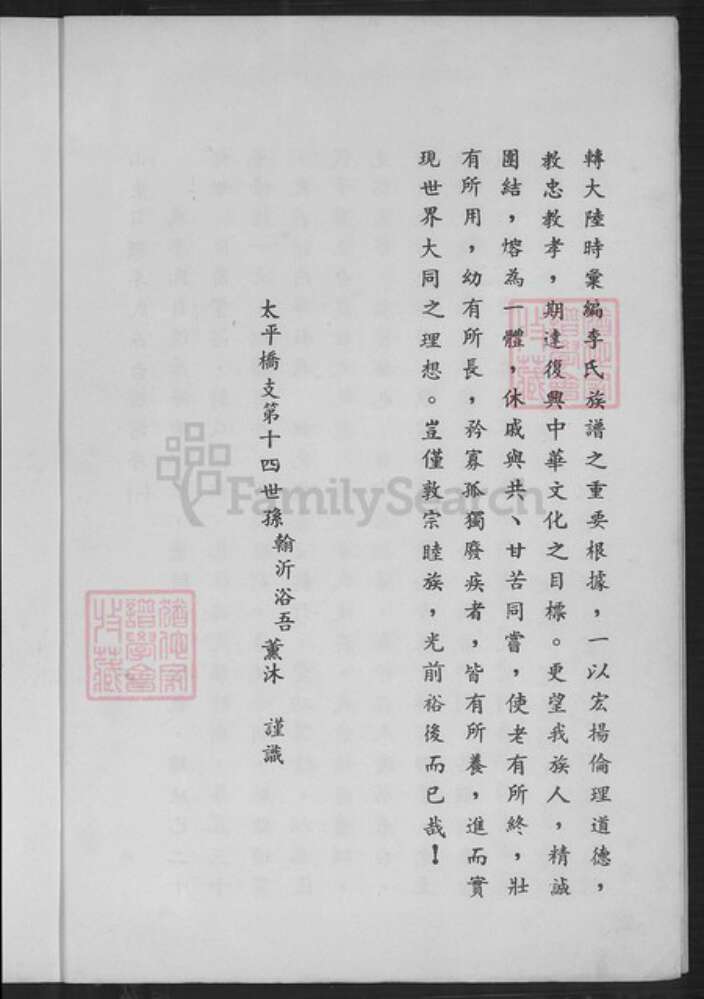 轉大陸時彙編李氏族譜之重要根據，一以宏揚倫理道德，
教忠教孝，期達復興中華文化之目標。更望我族人，精誠
團結，熔為一體，休戚與共、甘苦同嘗，使老有所終，壯
有所用，幼有所長，矜寡孤獨廢疾者，皆有所養，進而實
現世界大同之理想。豈僅敦宗睦族，光前裕後而已哉！
太平橋支第十四世孫翰沂浴吾薰沐 謹識
FamilySearch